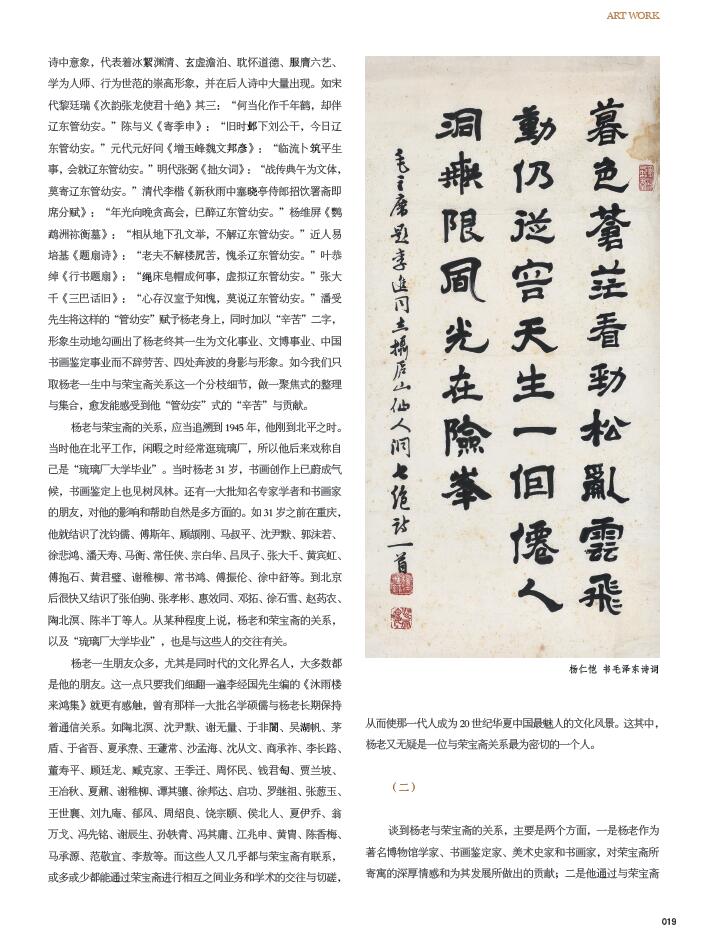 ART WORK
诗中意象，代表着冰絜渊清、玄虚澹泊、耽怀道德、服膺六艺、
学为人师、行为世范的崇高形象，并在后人诗中大量出现。如宋
代黎廷瑞《次韵张龙使君十绝》其三：“何当化作千年鹤，却伴
辽东管幼安。”陈与义《寄季申》：“旧时邺下刘公干，今日辽
东管幼安。”元代元好问《增玉峰魏文邦彦》：“临流卜筑平生
事，会就辽东管幼安。”明代张弼《拙女词》：“战传典午为文体，
莫寄辽东管幼安。”清代李楷《新秋雨中塞晓亭侍郎招饮署斋即
席分赋》：“年光向晚贪高会，已醉辽东管幼安。”杨维屏《鹦
鹉洲祢衡墓》：“相从地下孔文举，不解辽东管幼安。”近人易
培基《题扇诗》：“老夫不解楼尻苦，愧杀辽东管幼安。”叶恭
绰《行书题扇》：“绳床皂帽成何事，虚拟辽东管幼安。”张大
千《三巴话旧》：“心存汉室予知愧，莫说辽东管幼安。”潘受
先生将这样的“管幼安”赋予杨老身上，同时加以“辛苦”二字，
形象生动地勾画出了杨老终其一生为文化事业、文博事业、中国
书画鉴定事业而不辞劳苦、四处奔波的身影与形象。如今我们只
取杨老一生中与荣宝斋关系这一个分枝细节，做一聚焦式的整理
与集合，愈发能感受到他“管幼安”式的“辛苦”与贡献。
杨老与荣宝斋的关系，应当追溯到 1945 年，他刚到北平之时。
当时他在北平工作，闲暇之时经常逛琉璃厂，所以他后来戏称自
己是“琉璃厂大学毕业”。当时杨老 31 岁，书画创作上已蔚成气
候，书画鉴定上也见树风林。还有一大批知名专家学者和书画家
的朋友，对他的影响和帮助自然是多方面的。如 31 岁之前在重庆，
他就结识了沈钧儒、傅斯年、顾颉刚、马叔平、沈尹默、郭沫若、
徐悲鸿、潘天寿、马衡、常任侠、宗白华、吕凤子、张大千、黄宾虹、
傅抱石、黄君璧、谢稚柳、常书鸿、傅振伦、徐中舒等。到北京
后很快又结识了张伯驹、张孝彬、惠效同、邓拓、徐石雪、赵药农、
陶北溟、陈半丁等人。从某种程度上说，杨老和荣宝斋的关系，
以及“琉璃厂大学毕业”，也是与这些人的交往有关。
杨老一生朋友众多，尤其是同时代的文化界名人，大多数都
是他的朋友。这一点只要我们细翻一遍李经国先生编的《沐雨楼
来鸿集》就更有感触，曾有那样一大批名学硕儒与杨老长期保持
着通信关系。如陶北溟、沈尹默、谢无量、于非闇、吴湖帆、茅
盾、于省吾、夏承焘、王蘧常、沙孟海、沈从文、商承祚、李长路、
董寿平、顾廷龙、臧克家、王季迁、周怀民、钱君匋、贾兰坡、
王冶秋、夏鼐、谢稚柳、谭其骧、徐邦达、启功、罗继祖、张葱玉、
王世襄、刘九庵、郁风、周绍良、饶宗颐、侯北人、夏伊乔、翁
万戈、冯先铭、谢辰生、孙轶青、冯其庸、江兆申、黄胄、陈香梅、
马承源、范敬宜、李敖等。而这些人又几乎都与荣宝斋有联系，
或多或少都能通过荣宝斋进行相互之间业务和学术的交往与切磋，
暮色蒼茫看勁松亂雲飛
動仍從容天生一個僊人
洞無限風光在險峯
毛主席題李進同志攝廬山仙人洞七绝诗一首
杨仁恺 书毛泽东诗词
从而使那一代人成为 20 世纪华夏中国最魅人的文化风景。这其中，
杨老又无疑是一位与荣宝斋关系最为密切的一个人。
（二）
谈到杨老与荣宝斋的关系，主要是两个方面，一是杨老作为
著名博物馆学家、书画鉴定家、美术史家和书画家，对荣宝斋所
寄寓的深厚情感和为其发展所做出的贡献；二是他通过与荣宝斋
019